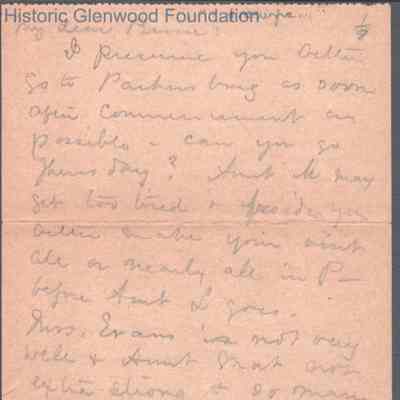 Historic Glenwood Foundation
My dear Bernice:
I presume you better
go to Parkersburg as soon
after Commencement as
possible - can you go
Thursday? Aunt M may
get too tired & besides you
better make your visit
all or nearly all in P-
before Aunt L goes.
Mrs. Evans is not very
well & Aunt not
extra strong & so many